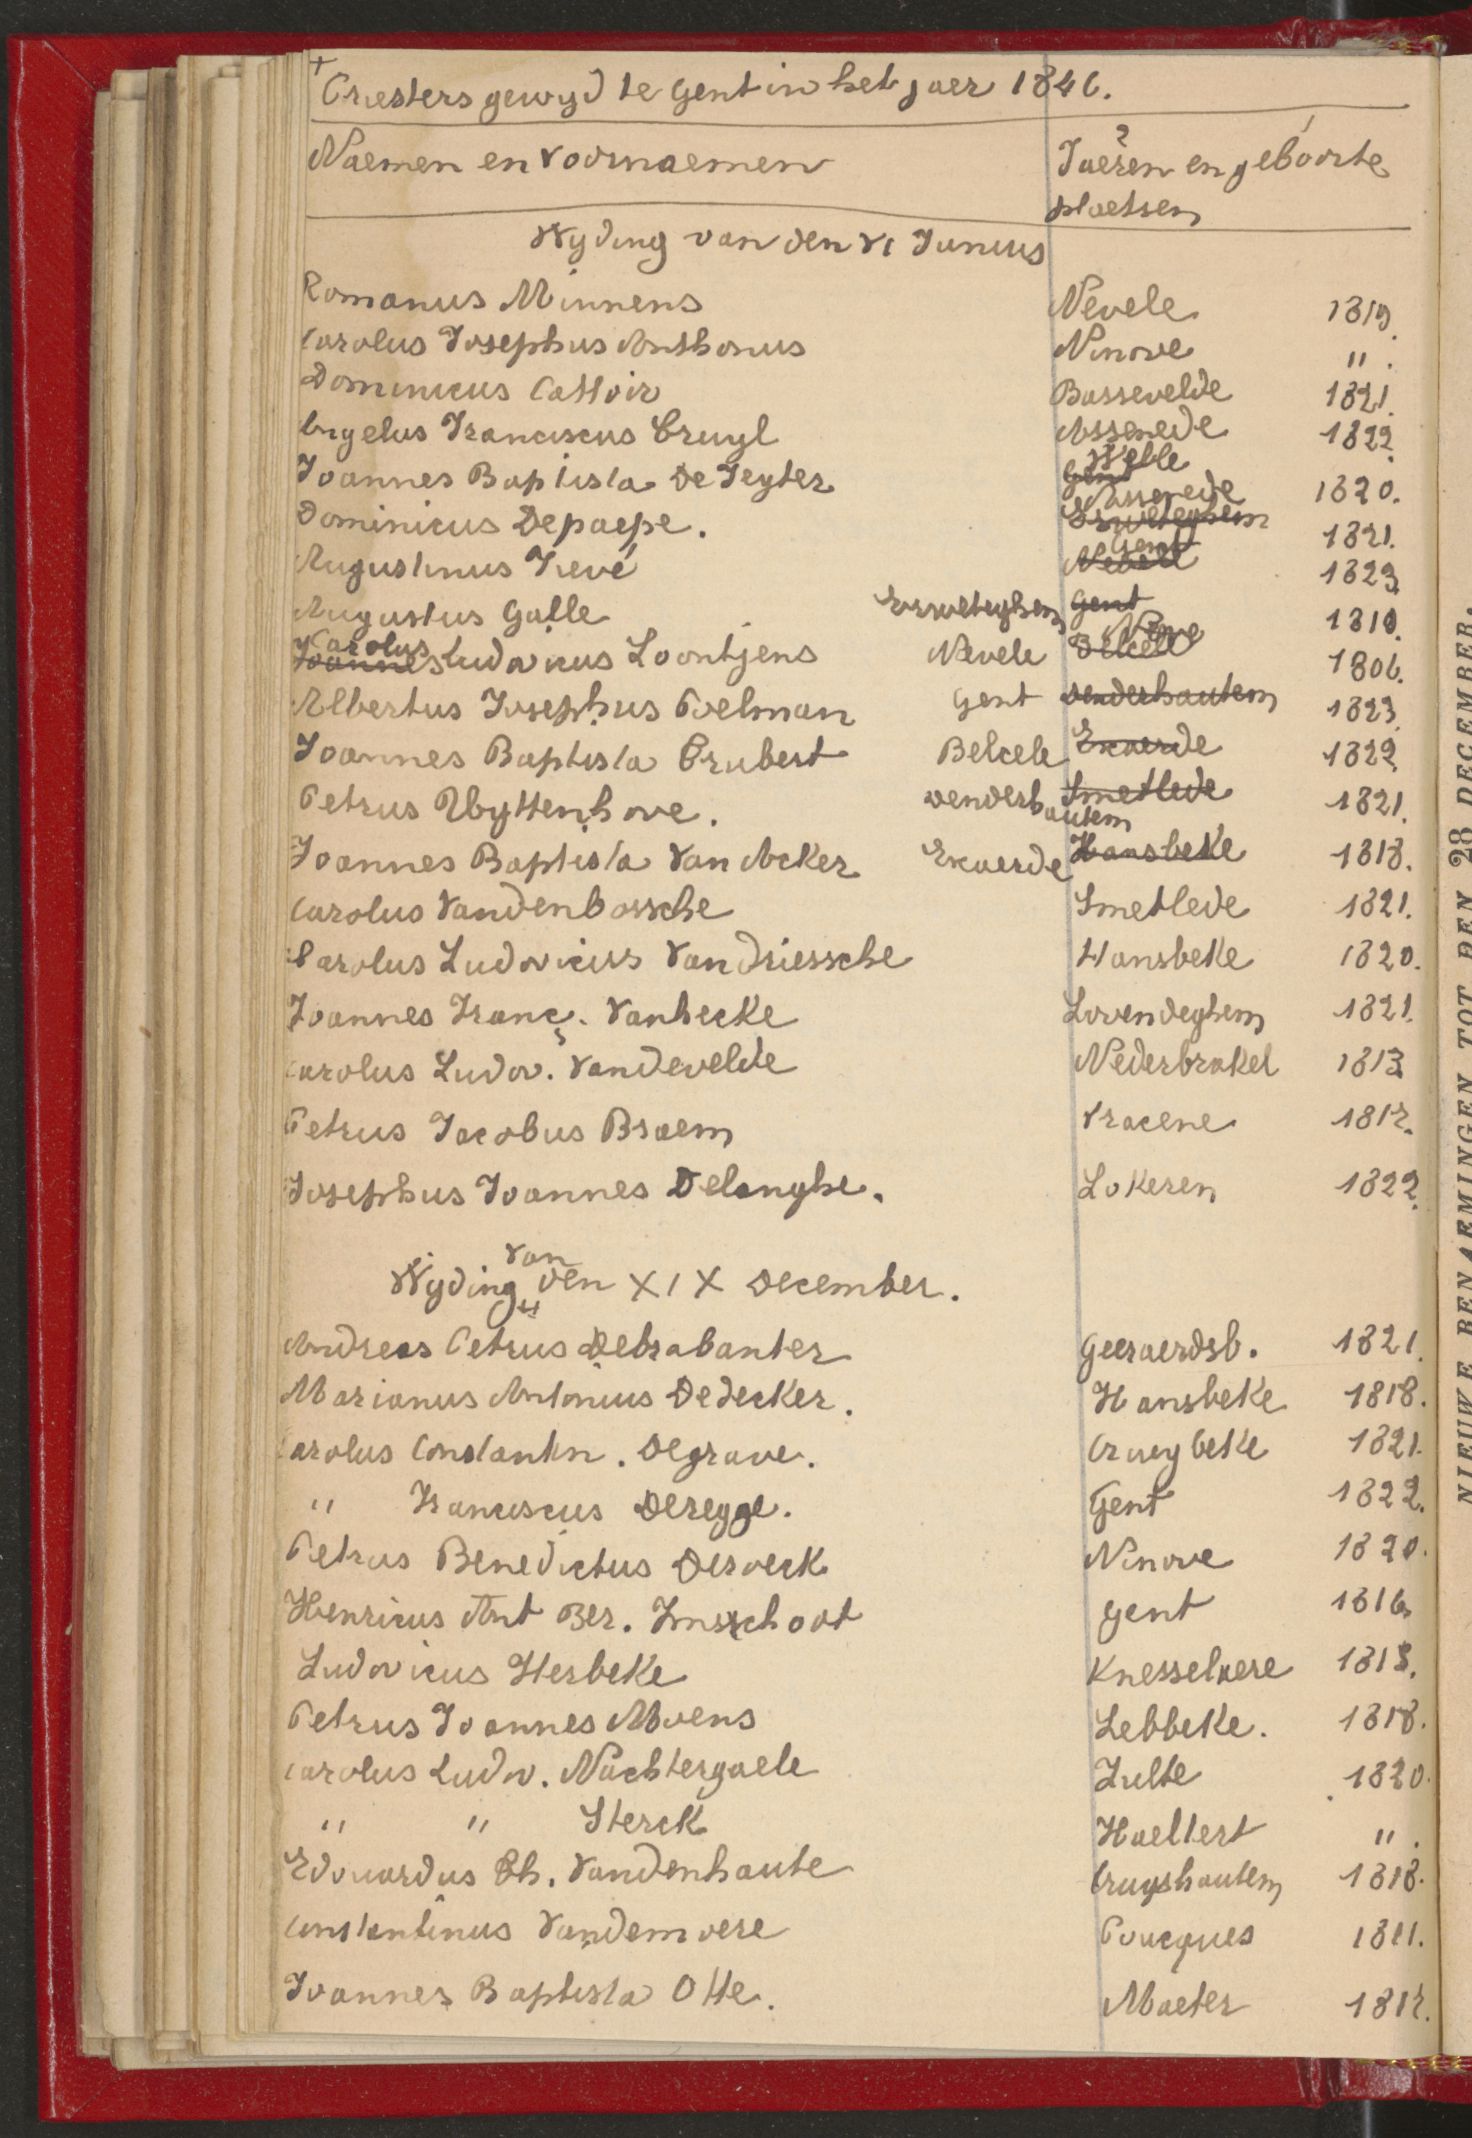 Priesters gewyd te Gent in het jaer 1846.
Naemen en voornaemen Jaeren en geboorte
plaetsen
Wyding van den VI Junius
Romanus Minnens Nevele 1819.
Carolus Josephus Anthonus Ninove " .
Dominicus Cattoir Bassevelde 1821.
Angelus Franciscus Cruyl Assenede 1822.
Joannes Baptista De Feyter Gent Welle 1820.
Dominicus Depaepe. Erweteghem Assenede 1821.
Augustinus Fievé Gent 1823
Augustus Galle Erweteghem Gent 1810.
Joannes Carolus Ludovicus Loontjens Nevele Belcele 1806.
Albertus Josephus Poelman Gent Denderhautem 1823.
Joannes Baptista Prubert Belcele Exaerde 1822.
Petrus Uyttenhove. Denderhautem Smetlede 1821.
Joannes Baptista Van Acker Exaerde Hansbeke 1818.
Carolus Vandenbossche Smetlede 1821.
Carolus Ludovicus Vandriessche Hansbeke 1820.
Joannes Franc. Vanhecke Lovendeghem 1821.
Carolus Ludov. Vandevelde Nederbrakel 1813
Petrus Jacobus Braem Vracene 1812.
Josephus Joannes Delanghe. Lokeren 1822.
Wyding van den XIX December.
Andreas Petrus Debrabanter Geeraerdsb. 1821.
Marianus Antonius Dedecker. Hansbeke 1818.
Carolus Constantin. Degrave. Cruybeke 1821.
" Franciscus Deregge. Gent 1822.
Petrus Benedictus Desoeck Ninove 1820.
Henricus Ant Ber. Imsschoot Gent 1816.
Ludovicus Herbeke Knesselaere 1818.
Petrus Joannes Moens Lebbeke. 1818.
Carolus Ludov. Nachtergaele Zulte 1820.
" " Sterck Haeltert " .
Edouardus Ch. Vandenhaute Cruyshautem 1818.
Constantinus Vandemoere Poucques 1811.
Joannes Baptista Otte. Maeter 1812.
NIEUWE BENAEMINGEN TOT DEN 28 DECEMBER.